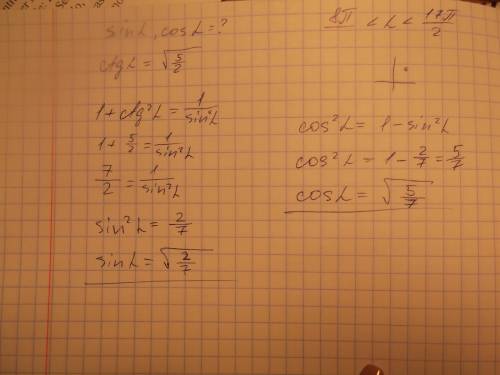 sin L, cos L = ?
ctg L = √(5/2)
1 + ctg²L = 1/sin²L
1 + 5/2 = 1/sin²L
7/2 = 1/sin²L
sin²L = 2/7
sin L = √(2/7)
8π < L < 17π/2
cos²L = 1 - sin²L
cos²L = 1 - 2/7 = 5/7
cos L = √(5/7)